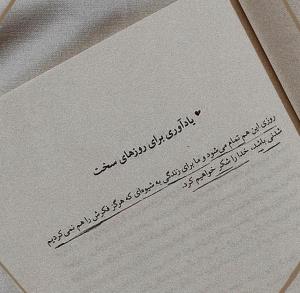 ♥ یادآوری برای روزهای سخت
روزی این هم تمام می‌شود و ما برای زندگی به شیوه‌ای که هرگز فکرش را هم نمی کردیم
شدنی باشد، خدا را شکر خواهیم کرد.